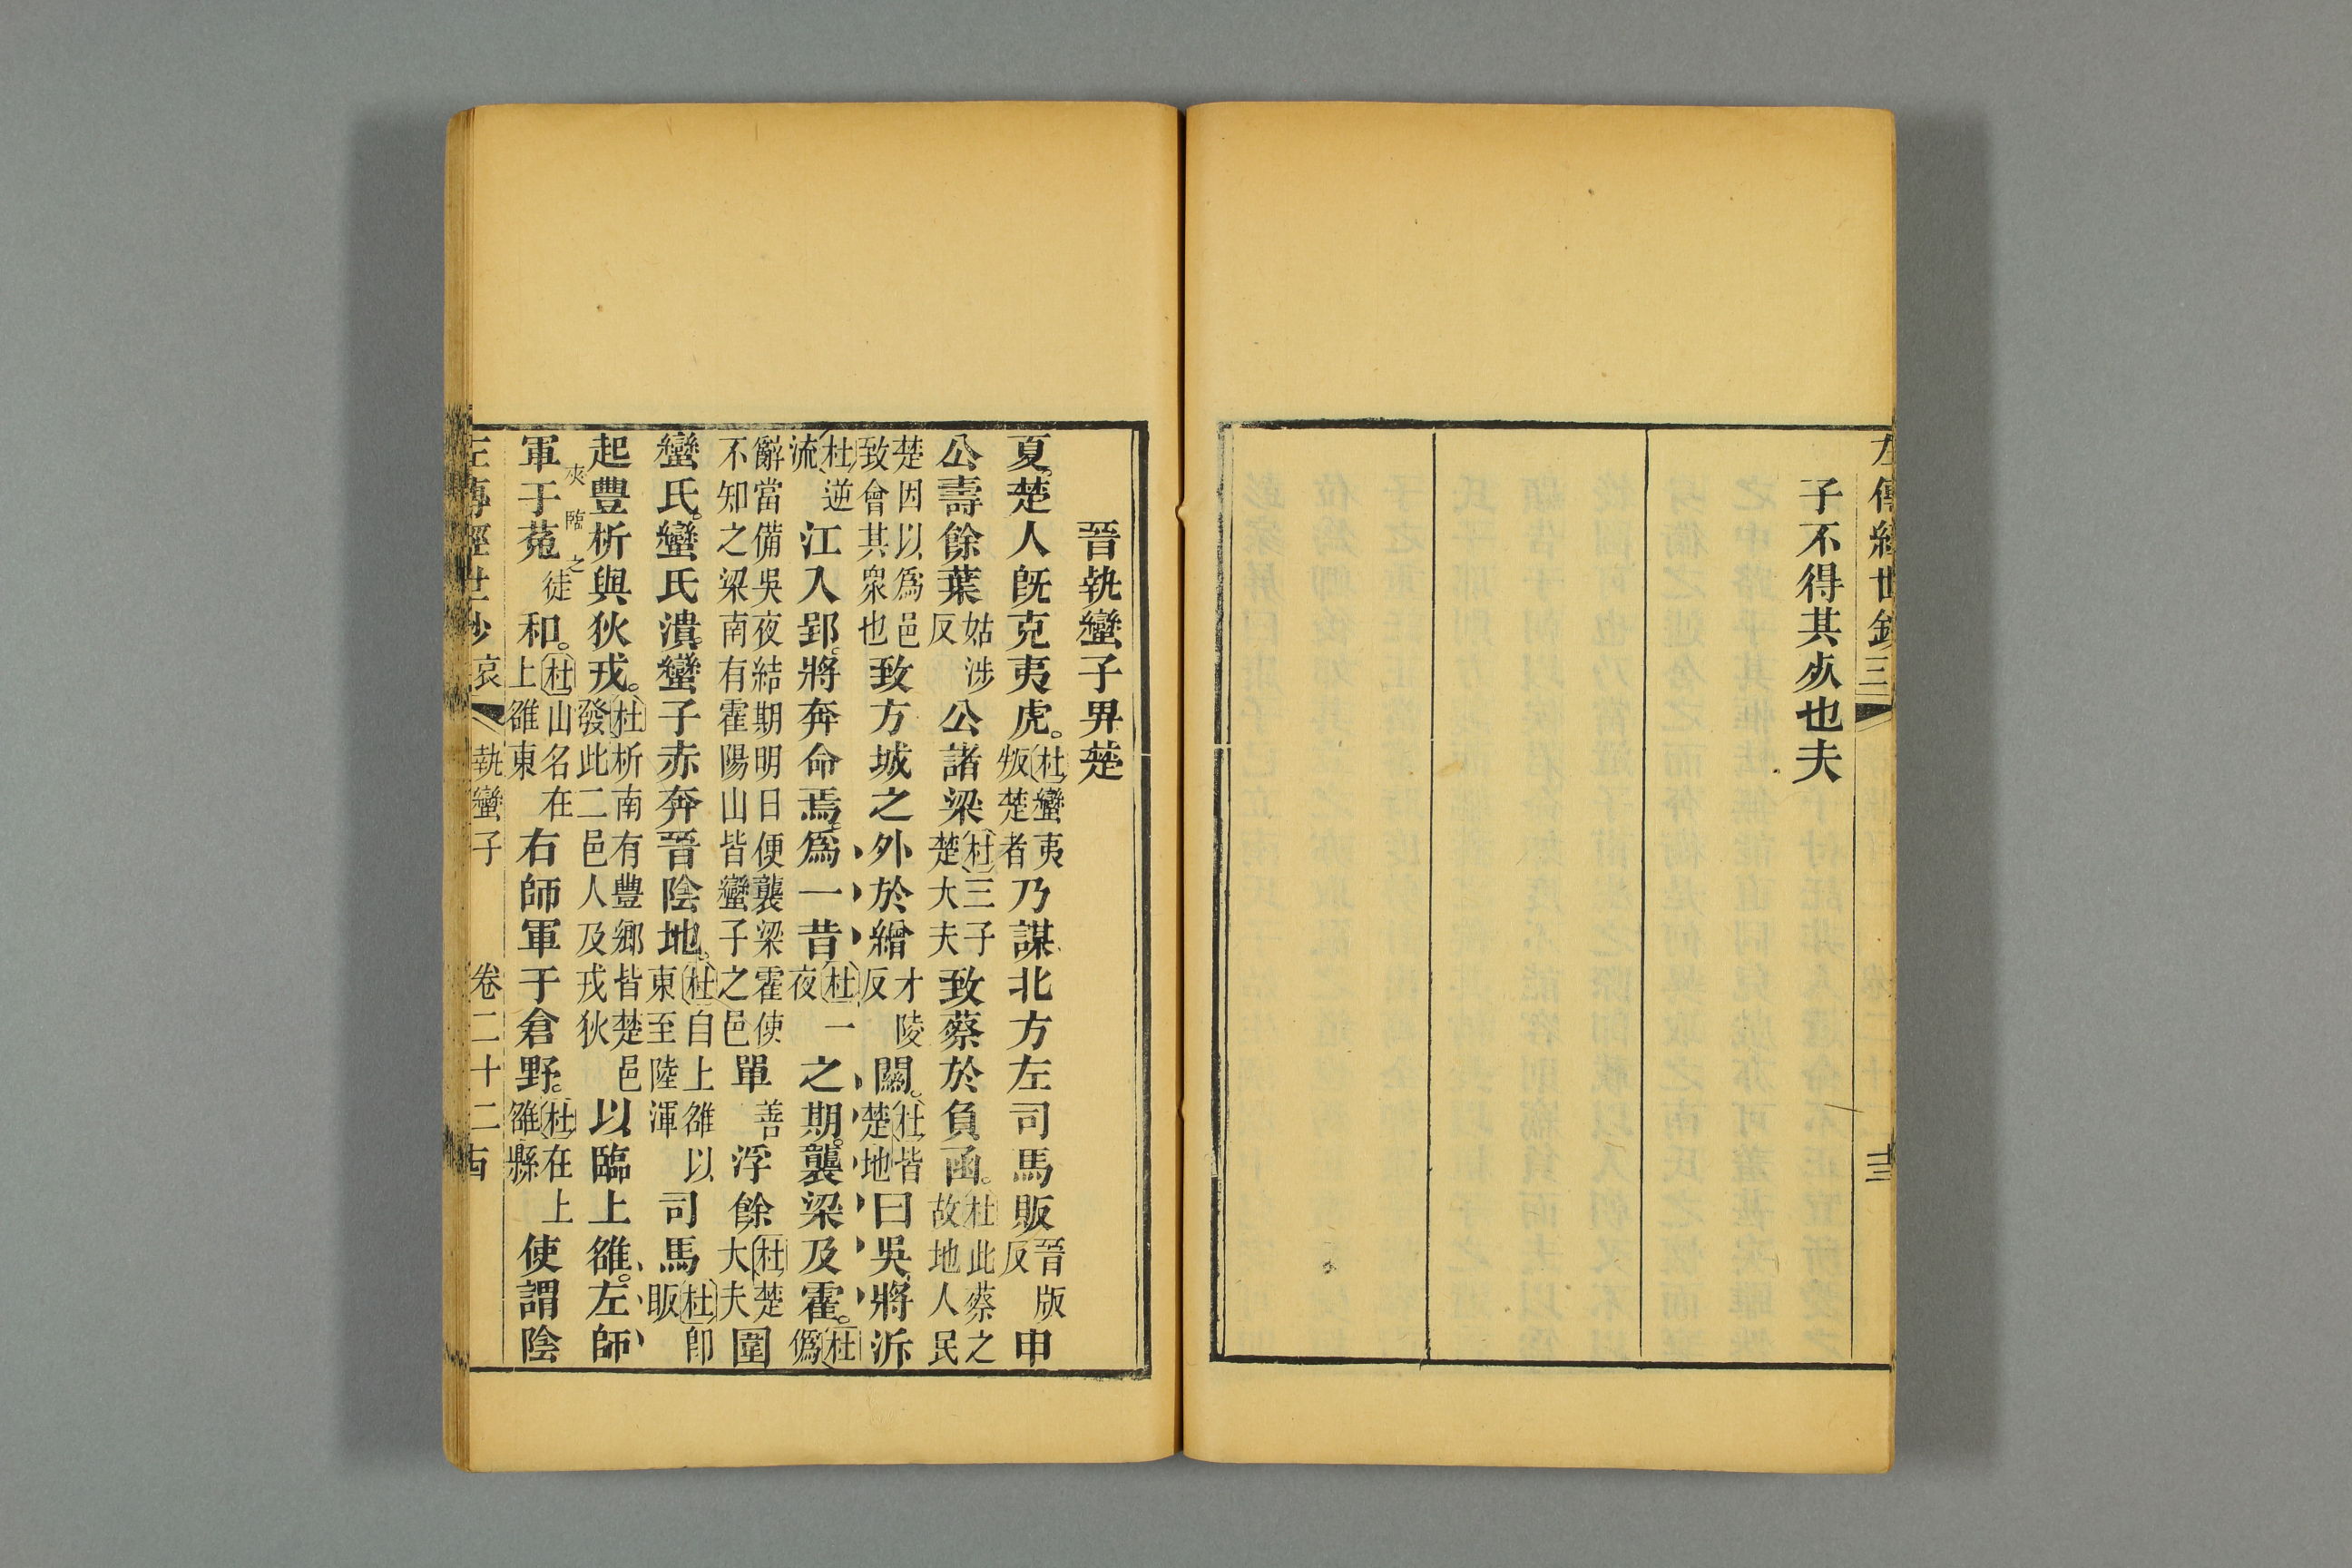 左傳經世鈔三
十三
子不得其死也夫
晉執蠻子畀楚
夏楚人既克夷虎。杜蠻夷叛楚者乃謀北方左司馬販晉版反申
公壽餘葉姑涉反公諸梁杜三子楚大夫致蔡於負函。杜此蔡之故地人民
楚因以爲邑致會其衆也致方城之外於繒才陵反關。杜皆楚地曰吳將泝
杜逆流江入郢。將奔命焉爲一昔杜一夜之期。襲梁及霍。杜僞
辭當備吳夜結期明日便襲梁霍使不知之梁南有霍陽山皆蠻子之邑單善浮餘杜楚大夫圍
蠻氏。蠻氏潰。蠻子赤奔晉陰地。杜自上雒以東至陸渾司馬杜卽販
起豐析與狄戎。杜析南有豐鄉皆楚邑發此二邑人及戎狄以臨上雒。左師
夾臨之
軍于菟徒和。杜山名在上雒東右師軍于倉野。杜在上雒縣使謂陰
左傳經世鈔 哀 執蠻子 卷二十二 古